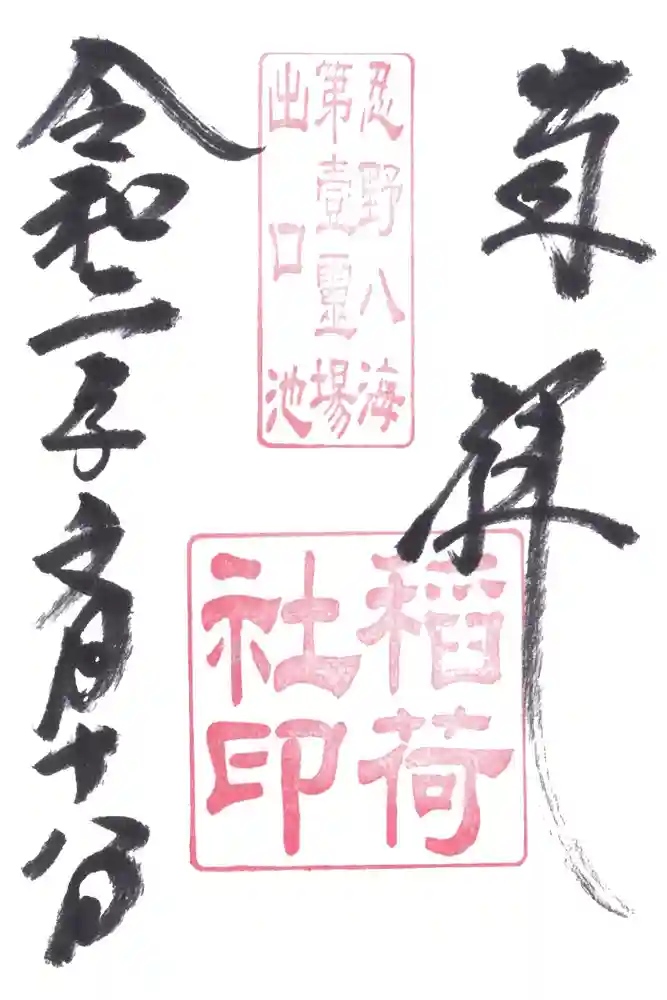 奉拝
忍野八海
第壹靈場
出口池
稲荷
社印
令和二子文月十八日